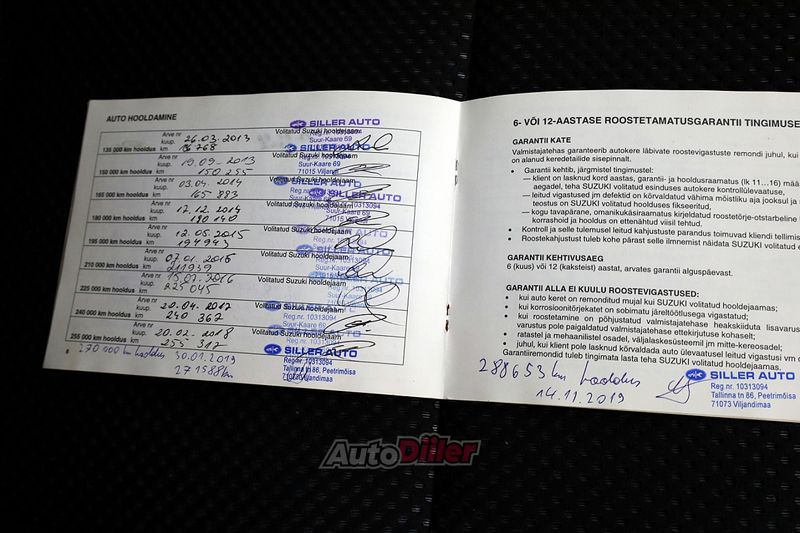 AUTO HOOLDAMINE
SILLER AUTO
Arve nr
kuup. 26.03.2013 Volitatud Suzuki hooldejaam
135 000 km hooldus km
Arve nr
kuup. 19.09-2013 Volitatud Suzuki hooldejaam
150 000 km hooldus km 150 255
Arve nr
kuup. 03.04.2014 Volitatud Suzuki hooldejaam
165 000 km hooldus km 165 883
Arve nr
kuup. 17.12.2014 Volitatud Suzuki hooldejaam
180 000 km hooldus km
Arve nr
kuup. 12.05.2015 Volitatud Suzuki hooldejaam
195 000 km hooldus km 194943
Arve nr
kuup. 07.01.2016 Volitatud Suzuki hooldejaam
210 000 km hooldus km 211939
Arve nr
kuup. 2016 Volitatud Suzuki hooldejaam
225 000 km hooldus km 225 045
Arve nr
kuup. 20.04.2017 Volitatud Suzuki hooldejaam
240 000 km hooldus km 240 362
Arve nr
kuup. 20.02.2018 Volitatud Suzuki hooldejaam
255 000 km hooldus km 255 317
270 000 km hooldus 30.01.2019
271588km
SILLER AUTO
Reg.nr. 10313094
Tallinna tn 86, Peetrimõisa
71073 Viljandimaa
8
6- VÕI 12-AASTASE ROOSTETAMATUSGARANTII TINGIMUSE
GARANTII KATE
Valmistajatehas garanteerib autokere läbivate roostevigastuste remondi juhul, kui
on alanud keredetailide sisepinnalt.
• Garantii kehtib, järgmistel tingimustel:
— klient on lasknud kord aastas, garantii- ja hooldusraamatus (lk 11...16) määr
aegadel, teha SUZUKI volitatud esinduses autokere kontrollülevaatuse,
— leitud vigastused jm defektid on kõrvaldatud vähima mõistliku aja jooksul ja s
teostus on SUZUKI volitatud hoolduses fikseeritud,
— kogu tavapärane, omanikukäsiraamatus kirjeldatud roostetõrje-otstarbeline
korrashoid ja hooldus on ettenähtud viisil tehtud.
• Kontroll ja selle tulemusel leitud kahjustuste parandus toimuvad kliendi tellimis
• Roostekahjustust tuleb kohe pärast selle ilmnemist näidata SUZUKI volitatud
GARANTII KEHTIVUSAEG
6 (kuus) või 12 (kaksteist) aastat, arvates garantii alguspäevast.
GARANTII ALLA EI KUULU ROOSTEVIGASTUSED:
• kui auto keret on remonditud mujal kui SUZUKI volitatud hooldejaamas;
• kui korrosioonitõrjekatet on sobimatu järeltöötlusega vigastatud;
• kui roostetamine on põhjustatud valmistajatehase heakskiiduta lisavarus
varustus pole paigaldatud valmistajatehase ettekirjutuse kohaselt;
• ratastel ja mehaanilistel osadel, väljalaskesüsteemil jm mitte-kereosadel;
• juhul, kui klient pole lasknud kõrvaldada auto ülevaatusel leitud vigastusi vm
Garantiiremondid tuleb tingimata lasta teha SUZUKI volitatud hooldejaamas.
288653 km hooldus
14.11.2019
SILLER AUTO
Reg.nr. 10313094
Tallinna tn 86, Peetrimõisa
71073 Viljandimaa
AutoDiller